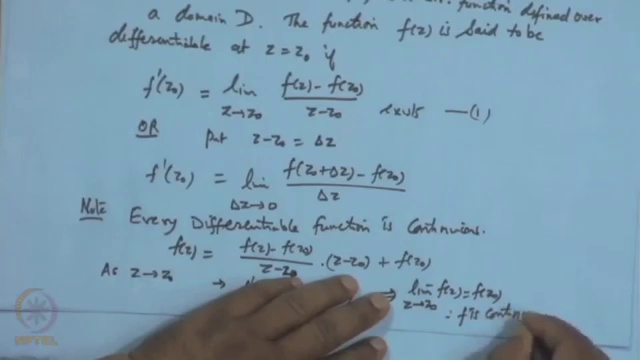 function defined over
a domain D. The function f(z) is said to be
differentiable at z = z₀ if
f'(z₀) = lim z→z₀ f(z) - f(z₀) / z - z₀ exists —(1)
OR put z - z₀ = Δz
f'(z₀) = lim Δz→0 f(z₀+Δz) - f(z₀) / Δz
Note Every Differentiable function is Continuous.
f(z) = f(z) - f(z₀) / z - z₀ · (z - z₀) + f(z₀)
As z → z₀ → ⇒ lim z→z₀ f(z) = f(z₀)
∴ f is Contin
NPTEL